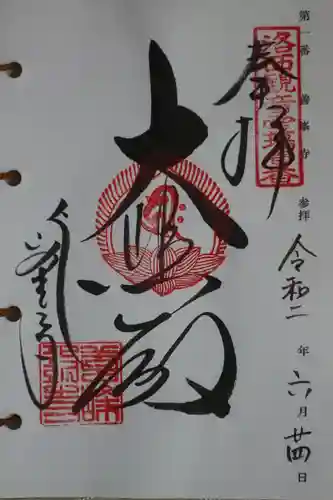 第一番 善峯寺 参拝 令和二年六月廿四日
奉拝
洛西観音霊場第一番
大悲閣
善峯寺